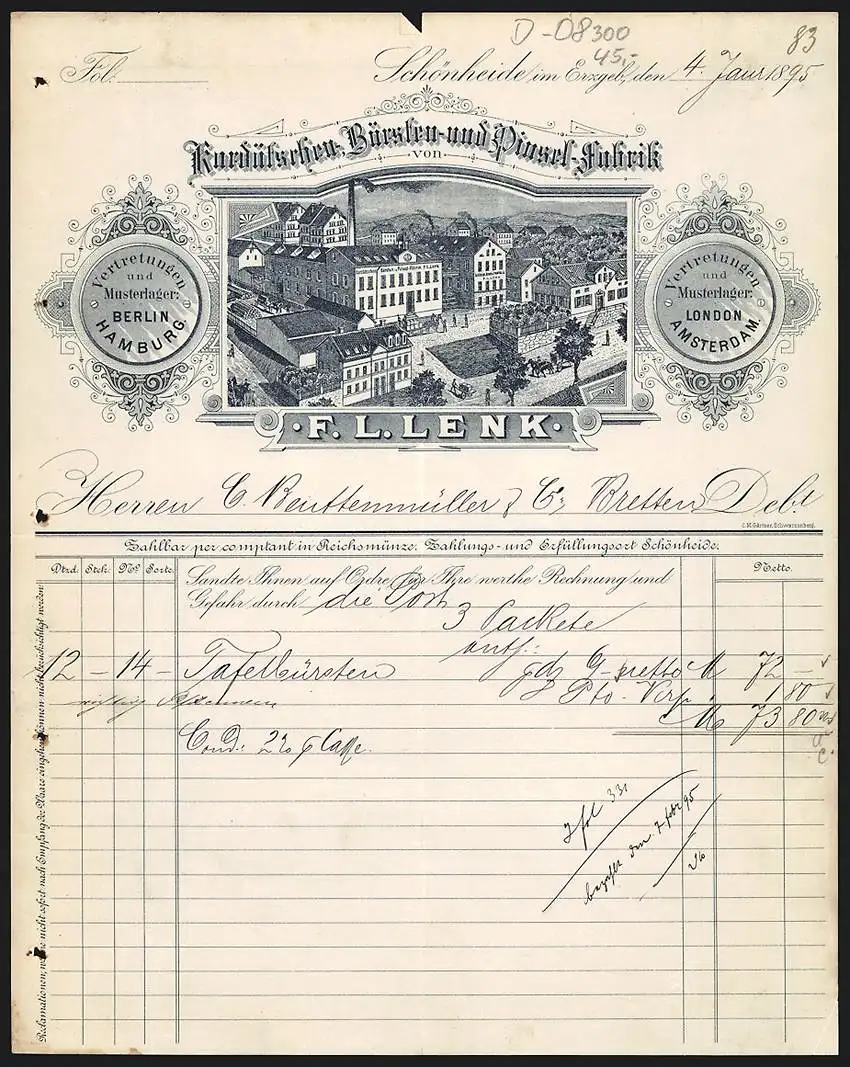 D-08300
45,-
83
Fol.
Schönheide im Erzgeb., den 4. Janr 1895
Kardätschen-, Bürsten- und Pinsel-Fabrik
von
F. L. LENK
Vertretungen
und
Musterlager:
BERLIN
HAMBURG.
Vertretungen
und
Musterlager:
LONDON
AMSTERDAM.
Herren C. Beuttenmüller & Co., Bretten Debt
C.M. Gärtner, Schwarzenberg.
Zahlbar per comptant in Reichsmünze. Zahlungs- und Erfüllungsort Schönheide.
Dtzd. Stck. No. Sorte. Netto.
Sandte Ihnen auf Ordre für Ihre werthe Rechnung und
Gefahr durch die Post
3 Packete
enth.:
12 – 14 – Tafelbürsten M 72 –
Pto. Verp. 1 80
M 73 80
Cond.: 2% Casse.
fol 331
bezahlt den 7 febr 95
Reclamationen, welche nicht sofort nach Empfang der Waare eingehen, können nicht berücksichtigt werden.